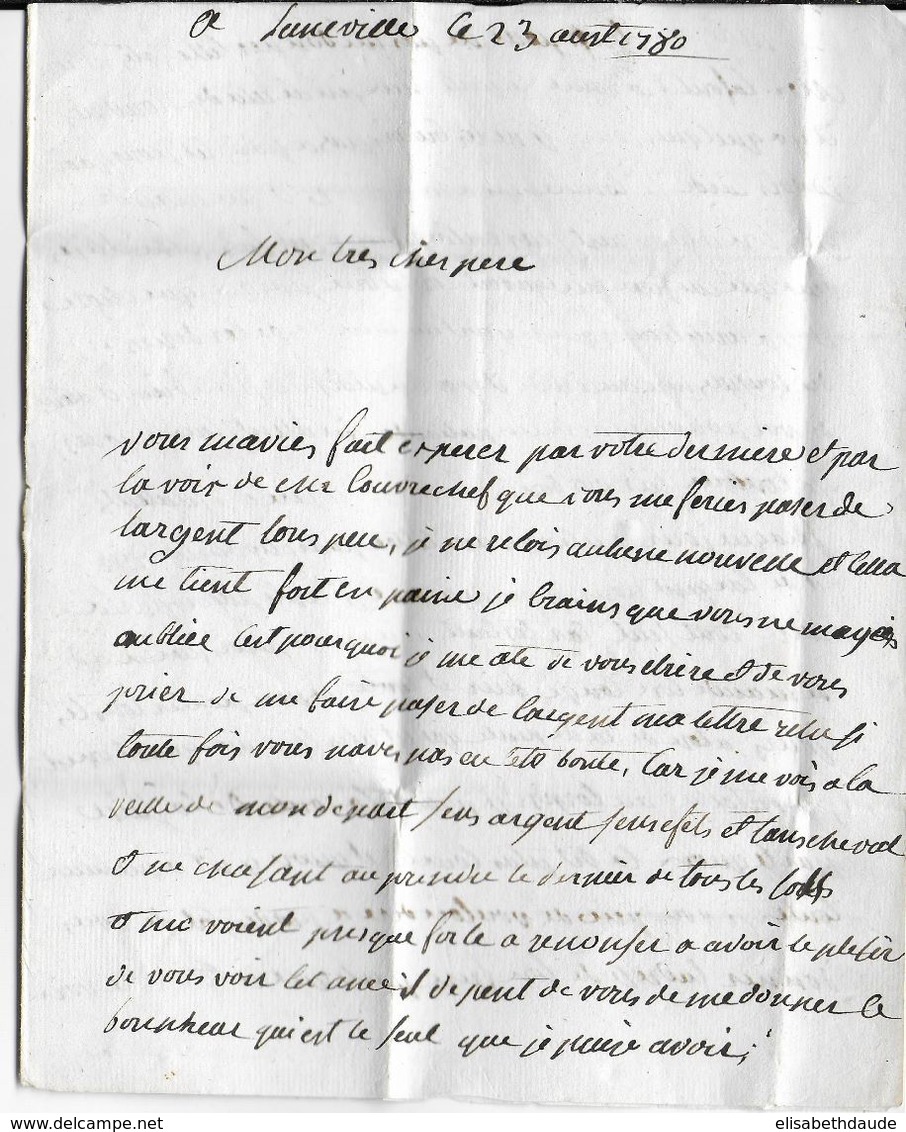 a Luneville le 23 aust 1780
Mon tres cher pere
vous mavies fait experer par votre derniere et par
la voix de Louvrechef que vous me feries paser de
largent sous peu, je ne resois aukune nouvelle et cella
me tient fort en paine je crains que vous ne mayiés
oubliée cest pourquoi je me ate de vous ecrire et de vous
prier de me faire paser de largent ma lettre resu si
toute fois vous naves pas eu cete bonté, car je me vois a la
veille de mon depart sens argent sens efets et sans cheval
et ne sachant ou prendre le dernier de tous les
et me voient presque forsé a renonser a avoir le plesir
de vous voir cet anée il depent de vous de me donner le
bounheur qui est le seul que je puise avoir,
www.delcampe.net
elisabethdaude